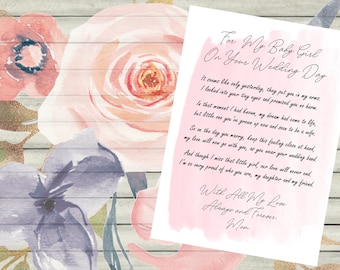 For My Baby Girl
On Your Wedding Day
It seems like only yesterday, they put you in my arms.
I looked into your tiny eyes and promised you no harm.
In that moment I had known, my dream had come to life,
but little one you've grown up now and soon to be a wife.
So on the day you marry, keep this feeling close at hand,
my love will now go with you, as you wear your wedding band.
And though I miss that little girl, our love will never end.
I'm so very proud of who you are, my daughter and my friend.
With All My Love
Always and Forever
Mom